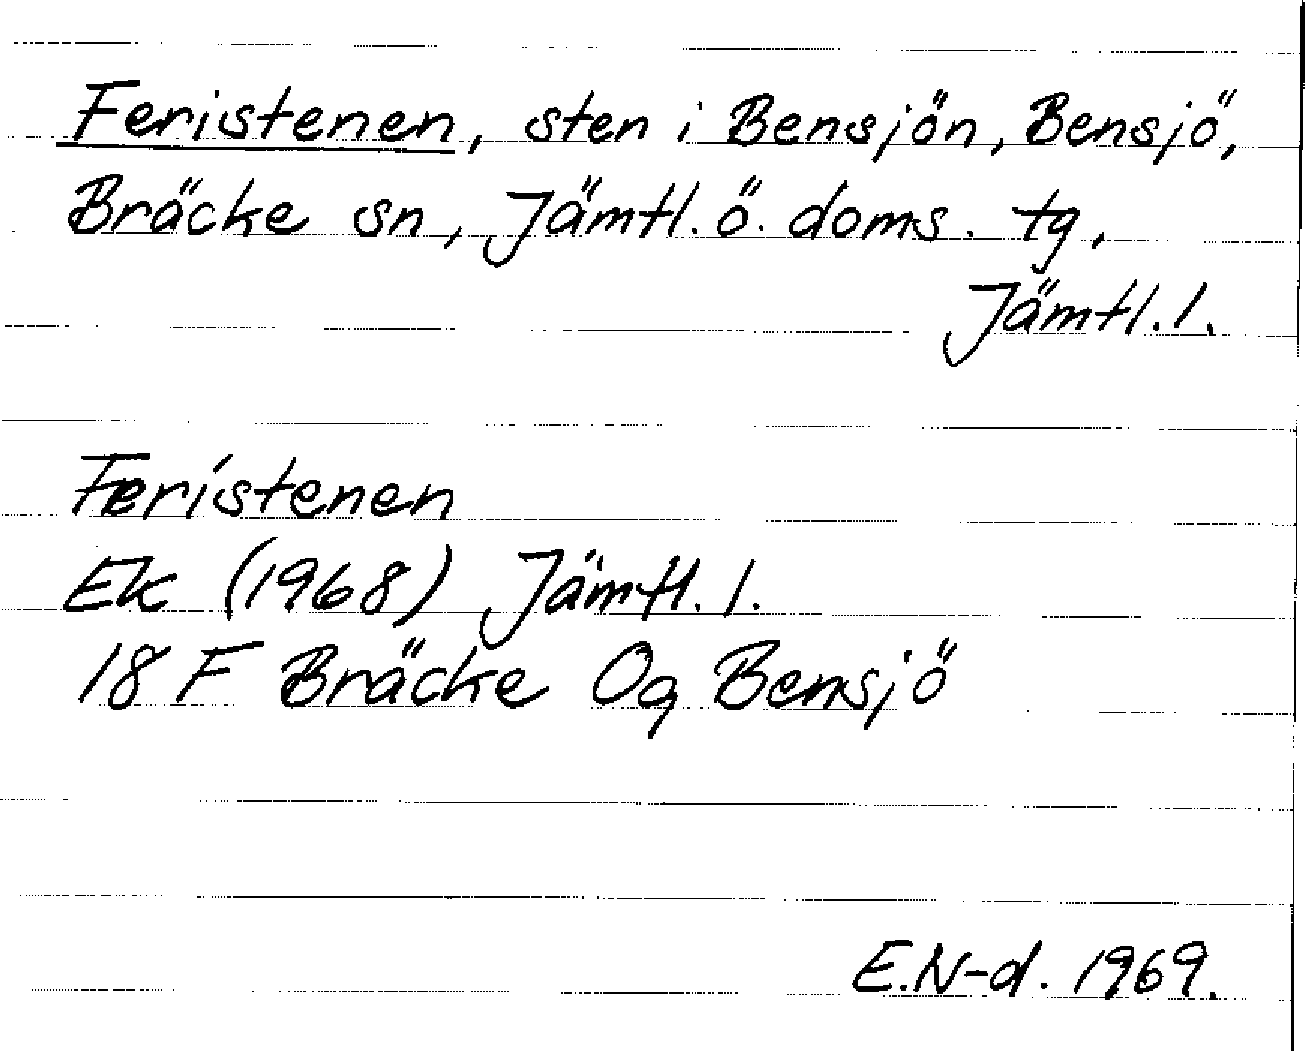 Feristenen, sten i Bensjön, Bensjö,
Bräcke sn, Jämtl. ö. doms. tg,
Jämtl. l.
Feristenen
Ek (1968) Jämtl. l.
18 F Bräcke Og Bensjö
E.N-d. 1969.